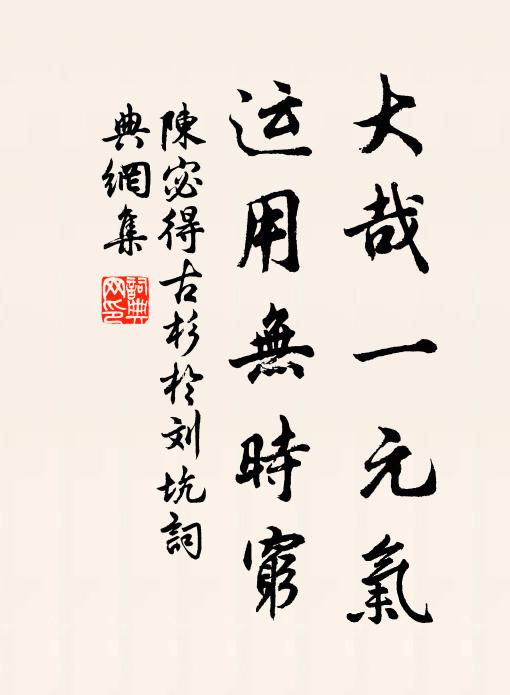 大哉一元氣
运用無時窮
陳宓得古杉於刘坑詞
典網集
詞典网印